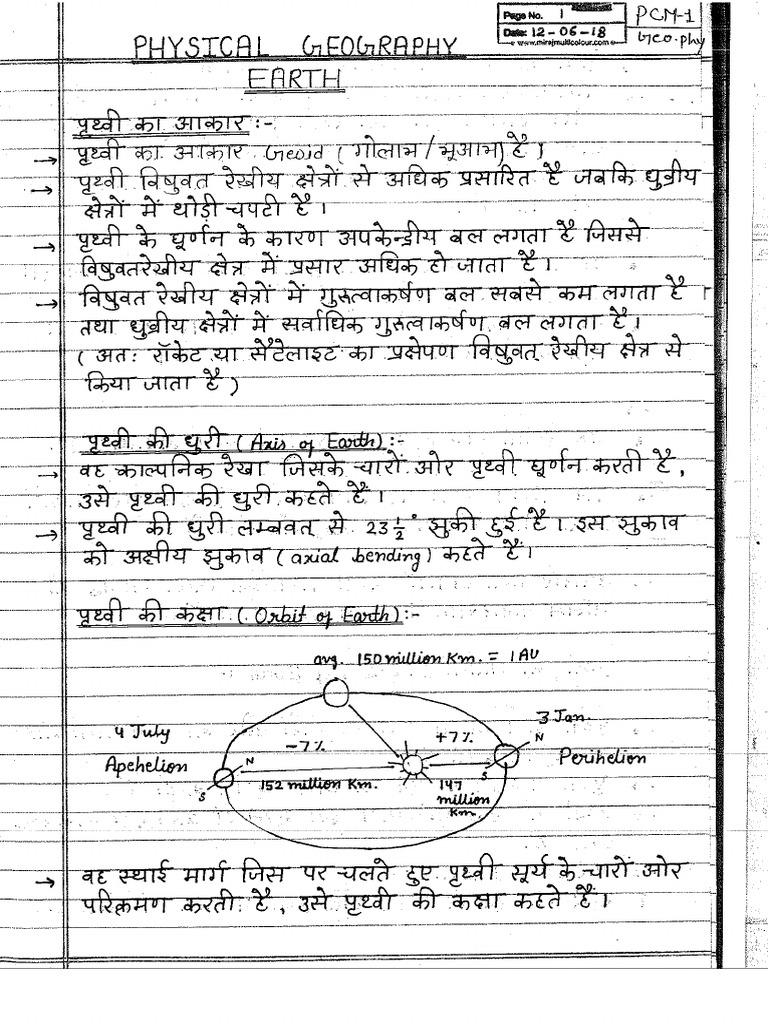 Page No. 1
Date: 12-06-18
www.mirajmulticolour.com
PCM-1
Geo.phy
PHYSICAL GEOGRAPHY
EARTH
पृथ्वी का आकार :-
→ पृथ्वी का आकार Geoid ( गोलाभ / भूआभ) है।
→ पृथ्वी विषुवत रेखीय क्षेत्रों से अधिक प्रसारित है जबकि ध्रुवीय
क्षेत्रों में थोड़ी चपटी है।
→ पृथ्वी के घूर्णन के कारण अपकेन्द्रीय बल लगता है जिससे
विषुवतरेखीय क्षेत्र में प्रसार अधिक हो जाता है।
→ विषुवत रेखीय क्षेत्रों में गुरुत्वाकर्षण बल सबसे कम लगता है।
तथा ध्रुवीय क्षेत्रों में सर्वाधिक गुरुत्वाकर्षण बल लगता है।
( अतः रॉकेट या सैटेलाइट का प्रक्षेपण विषुवत् रेखीय क्षेत्र से
किया जाता है )
पृथ्वी की धुरी ( Axis of Earth) :-
→ वह काल्पनिक रेखा जिसके चारों ओर पृथ्वी घूर्णन करती है,
उसे पृथ्वी की धुरी कहते हैं।
→ पृथ्वी की धुरी लम्बवत् से 23 1/2° झुकी हुई है। इस झुकाव
को अक्षीय झुकाव ( axial bending) कहते हैं।
पृथ्वी की कक्षा ( Orbit of Earth) :-
avg. 150 million Km. = 1 AU
4 July
3 Jan.
-7%
+7%
N
N
Apehelion
Perihelion
S
S
152 million Km.
147
million
Km.
→ वह स्थाई मार्ग जिस पर चलते हुए पृथ्वी सूर्य के चारों ओर
परिक्रमण करती है, उसे पृथ्वी की कक्षा कहते हैं।